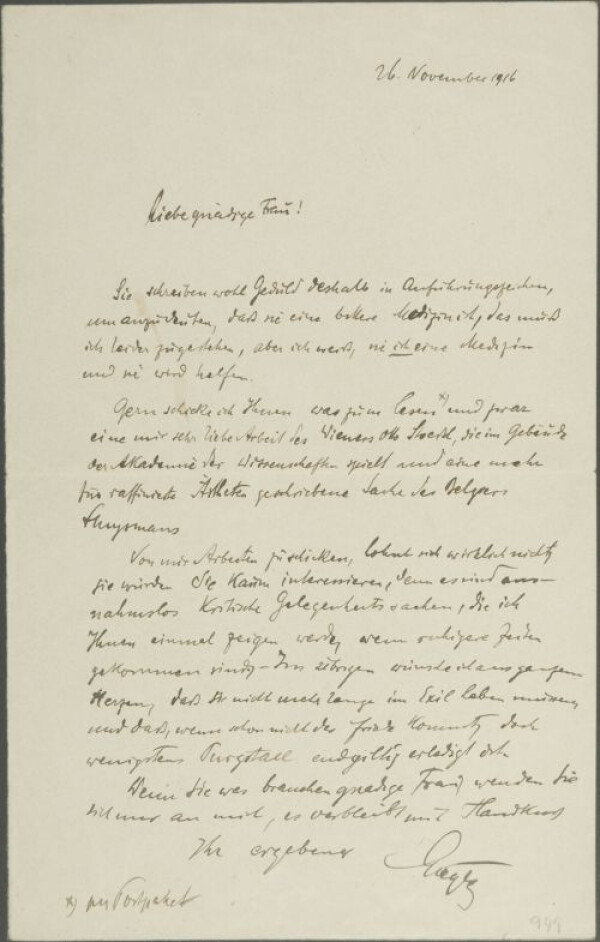 26. November 1916
Liebe gnädige Frau!
Sie schreiben wohl Geduld deshalb in Anführungszeichen,
um anzudeuten, daß sie eine bittere Medizin ist, das muß
ich leider zugestehen, aber ich weiß, sie ist eine Medizin
und sie wird helfen.
Gern schicke ich Ihnen was zum lesen x) und zwar
eine mir sehr liebe Arbeit des Wieners Otto Stoessl, die im Gebäude
der Akademie der Wissenschaften spielt und eine mehr
für raffinierte Ästheten geschriebene Sache des Belgiers
Huysmans
Von mir Arbeiten zu schicken, lohnt sich wirklich nicht,
sie würden Sie kaum interessieren, denn es sind aus-
nahmslos kritische Gelegenheitssachen, die ich
Ihnen einmal zeigen werde, wenn ruhigere Zeiten
gekommen sind. – Im übrigen wünsche ich aus ganzem
Herzen, daß Sie nicht mehr lange im Exil leben müssen
und daß, wenn schon nicht der Friede kommt, doch
wenigstens Purgstall endgiltig erledigt ist.
Wenn Sie was brauchen gnädige Frau, wenden Sie
sich nur an mich, es verbleibt mit Handkuss
Ihr ergebener
x) per Postpaket
949